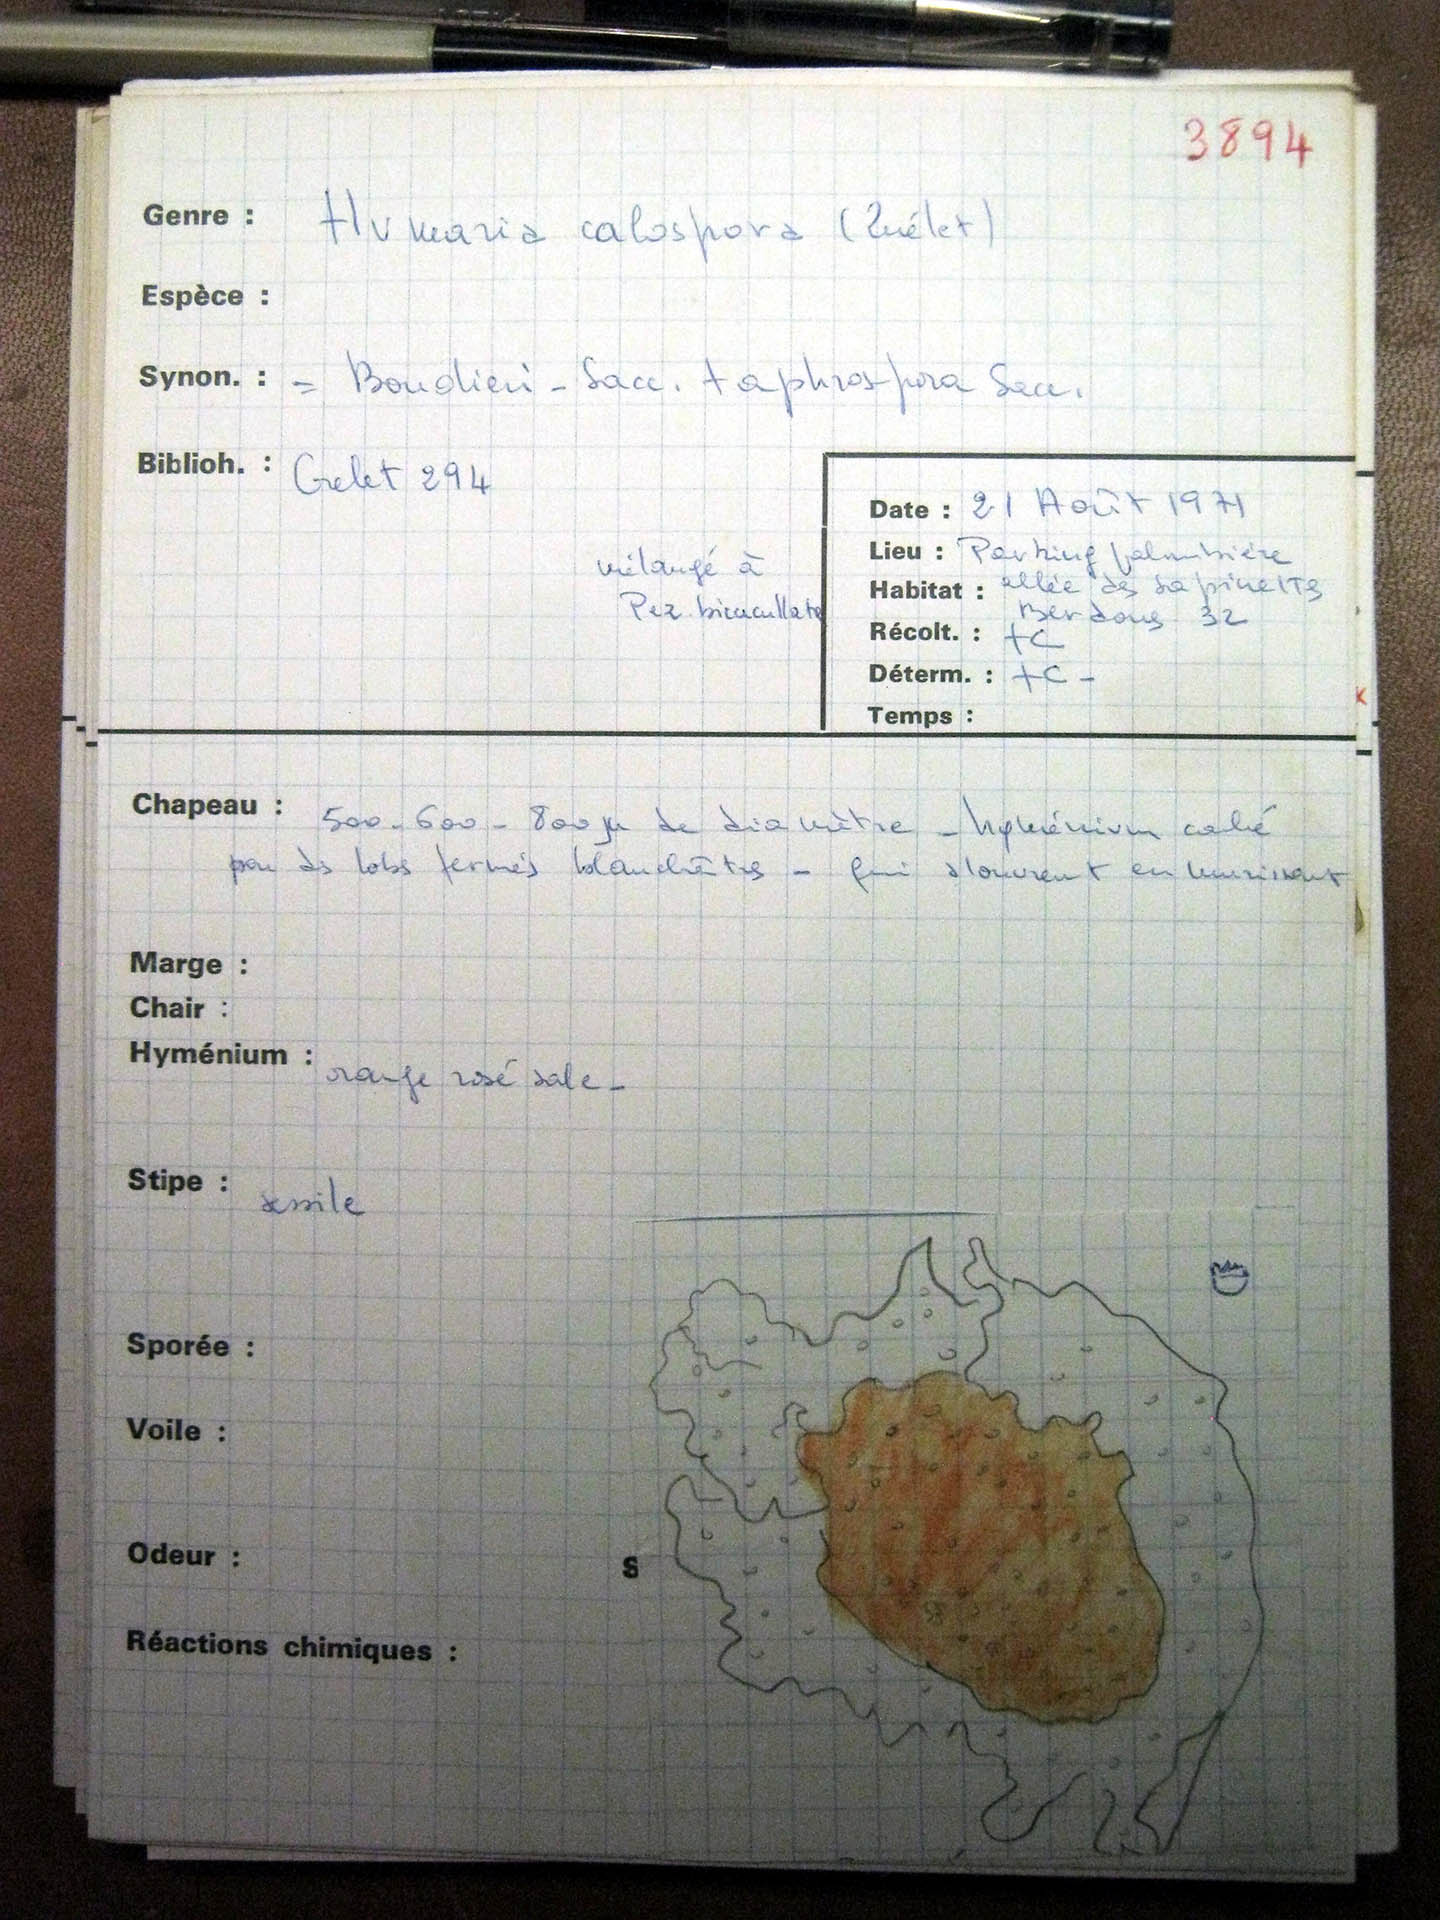 3894
Genre : Humaria calospora (Quélet)
Espèce :
Synon. : = Boudieri - Sacc. taphrospora Sacc.
Biblioh. : Grelet 294
mélangé à
Pez bicucullata
Date : 21 Août 1971
Lieu : Parking palombière
Habitat : allée des sapinettes
Berdoues 32
Récolt. : +C
Déterm. : +C -
Temps :
Chapeau : 500-600-800µ de diamètre - hyménium caché
par des lobes fermés blanchâtres - qui s'ouvrent en murissant
Marge :
Chair :
Hyménium : orange rosé sale -
Stipe : sessile
Sporée :
Voile :
Odeur : S
Réactions chimiques :